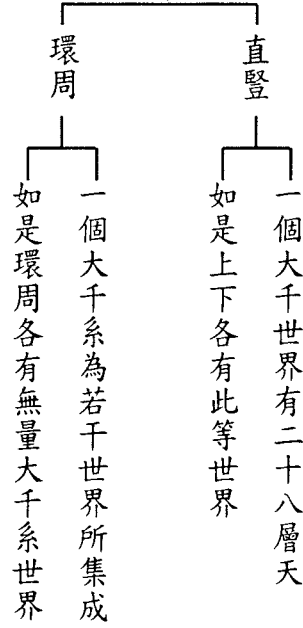 直豎
一個大千世界有二十八層天
如是上下各有此等世界
環周
一個大千系為若干世界所集成
如是環周各有無量大千系世界